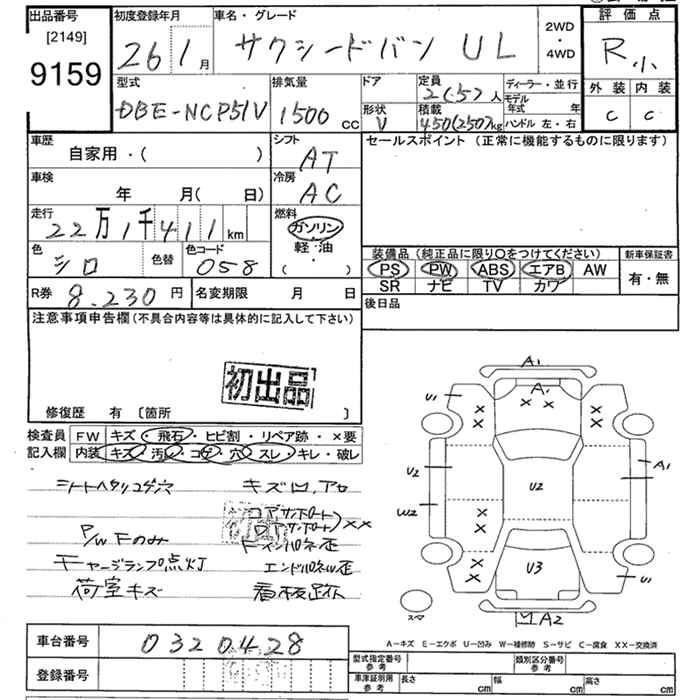 出品番号
[2149]
9159
初度登録年月
26 1月
車名・グレード
サクシードバン UL
2WD
・
4WD
評価点
R小
外装 内装
C C
型式
DBE-NCP51V
排気量
1500 cc
ドア
形状
V
定員
2(5)人
積載
450(250)kg
ディーラー・並行
モデル年式 年
ハンドル 左・右
車歴
自家用・( )
シフト
AT
セールスポイント (正常に機能するものに限ります)
車検
年 月( 日)
冷房
AC
走行
22万1千411km
燃料
ガソリン
軽・油
( )
色
シロ
色替
色コード
058
装備品(純正品に限り○をつけてください)
PS PW ABS エアB AW
SR ナビ TV カワ
新車保証書
有・無
R券 8.230円
名変期限 月 日
後日品
注意事項申告欄(不具合内容等は具体的に記入して下さい)
初出品
修復歴 有 [箇所 ]
検査員
記入欄
FW キズ・飛石・ヒビ割・リペア跡・×要
内装 キズ・汚・コゲ・穴・スレ・キレ・破レ
シートヘタリコゲ穴
キズ凹、アセ
P/W Fのみ
チャージランプ点灯
エンドパネ歪
荷室キズ
看板跡
A1
A1
U1
U2
W2
U2
A1
U3
U1
スマ
A2
A-キズ E-エクボ U-凹み W-補修跡 S-サビ C-腐食 XX-交換済
車台番号
0320428
登録番号
型式指定番号
参考
類別区分番号
参考
車庫証明用
参考
長さ cm 幅 cm 高さ cm